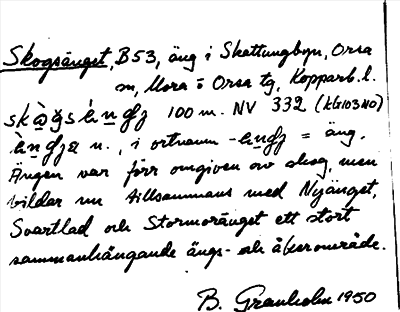 Skogsänget, B53, äng i Skattungbyn, Orsa
sn, Mora o Orsa tg, Kopparb. l.
100 m. NV 332 (KG103NO)
n., i ortnamn = äng.
Ängen var förr omgiven av skog, men
bildar nu tillsammans med Nyänget,
Svartlad och Stormoränget ett stort
sammanhängande ängs- och åkerområde.
B. Granholm 1950